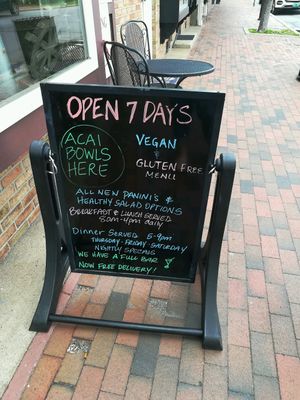 OPEN 7 DAY'S
ACAI
BOWLS
HERE
VEGAN
GLUTEN FREE
MENU
ALL NEW PANINI'S &
HEALTHY SALAD OPTIONS
BREAKFAST & LUNCH SERVED
8AM-4PM daily
Dinner Served 5-9pm
THURSDAY-FRIDAY-SATURDAY
NIGHTLY SPECIALS
WE HAVE A FULL BAR
NOW FREE DELIVERY!